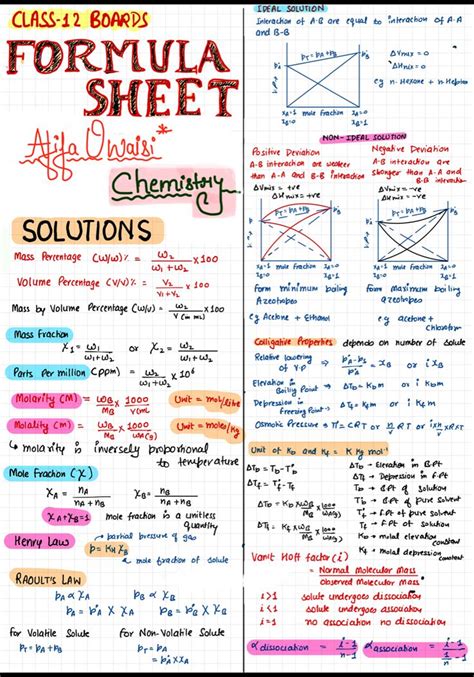 CLASS-12 BOARDS
FORMULA
SHEET
Afifa Owaisi
Chemistry
SOLUTIONS
Mass Percentage (W/w)% = ω₂/(ω₁+ω₂) × 100
Volume Percentage (V/V)% = V₂/(V₁+V₂) × 100
Mass by Volume Percentage (ω/v) = ω₂/V (in mL) × 100
Mass Fraction
X₁ = ω₁/(ω₁+ω₂) or X₂ = ω₂/(ω₁+ω₂)
Parts Per million (ppm) = ω₂/(ω₁+ω₂) × 10⁶
Molarity (M) = ωB/MB × 1000/V(mL) Unit = mol/litre
Molality (m) = ωB/MB × 1000/WA(g) Unit = moles/kg
↳ molarity is inversely proportional
to temperature
Mole Fraction (χ)
χA = nA/(nA+nB) χB = nB/(nA+nB)
χA+χB=1 mole fraction is a unitless
quantity
Henry Law
partial pressure of gas
p = KH χB
mole fraction of solute
RAOULT'S LAW
pA ∝ χA pB ∝ χB
pA = p°A × χA pB = p°B × χB
for Volatile Solute for Non-Volatile Solute
PT = PA+PB PT = PA
= p°A×XA
IDEAL SOLUTION
Interaction of A-B are equal to interaction of A-A
and B-B
PT = PA+PB
p°A
p°B
ΔVmix = 0
ΔHmix = 0
eg n-Hexane + n-Heptan
XA=1 mole fraction XA=0
XB=0 XB=1
NON-IDEAL SOLUTION
Positive Deviation Negative Deviation
A-B interaction are weaker A-B interaction are
than A-A and B-B interaction stronger than A-A and
B-B interaction
ΔVmix = +ve ΔVmix = -ve
ΔHmix = +ve ΔHmix = -ve
PT = PA+PB PT = PA+PB
XA=1 mole fraction XA=0 XA=1 mole fraction XA=0
XB=0 XB=1 XB=0 XB=1
form minimum boiling form maximum boiling
Azeotropes Azeotropes
eg Acetone + Ethanol eg acetone +
chloroform
Colligative Properties depends on number of Solute
Relative lowering
of V.P → (p°A-pA)/p°A = XB or iXB
Elevation in
Boiling Point → ΔTb = Kbm or iKbm
Depression in
freezing Point → ΔTf = Kfm or iKfm
Osmotic Pressure → π = CRT or n/V RT or i×n/V×RT
Unit of Kb and Kf = K Kg mol⁻¹
ΔTb = Tb - T°b
ΔTf = T°f - Tf
ΔTb = Kb × ωB/MB × 1000/WA(g)
ΔTf = Kf × ωB/MB × 1000/WA(g)
ΔTb → Elevation in B.Pt
ΔTf → Depression in F.Pt
Tb → B.Pt of solution
T°b → B.Pt of pure solvent
T°f → F.Pt of pure solvent
Tf → F.Pt of Solution
Kb → molal elevation
constant
Kf → molal depression
constant
Vanit Hoff factor (i)
= Normal molecular mass
Observed molecular mass
i>1 solute undergoes dissociation
i<1 solute undergoes association
i=1 no association no dissociation
α dissociation = (i-1)/(n-1) α association = (i-1)/(1/n-1)